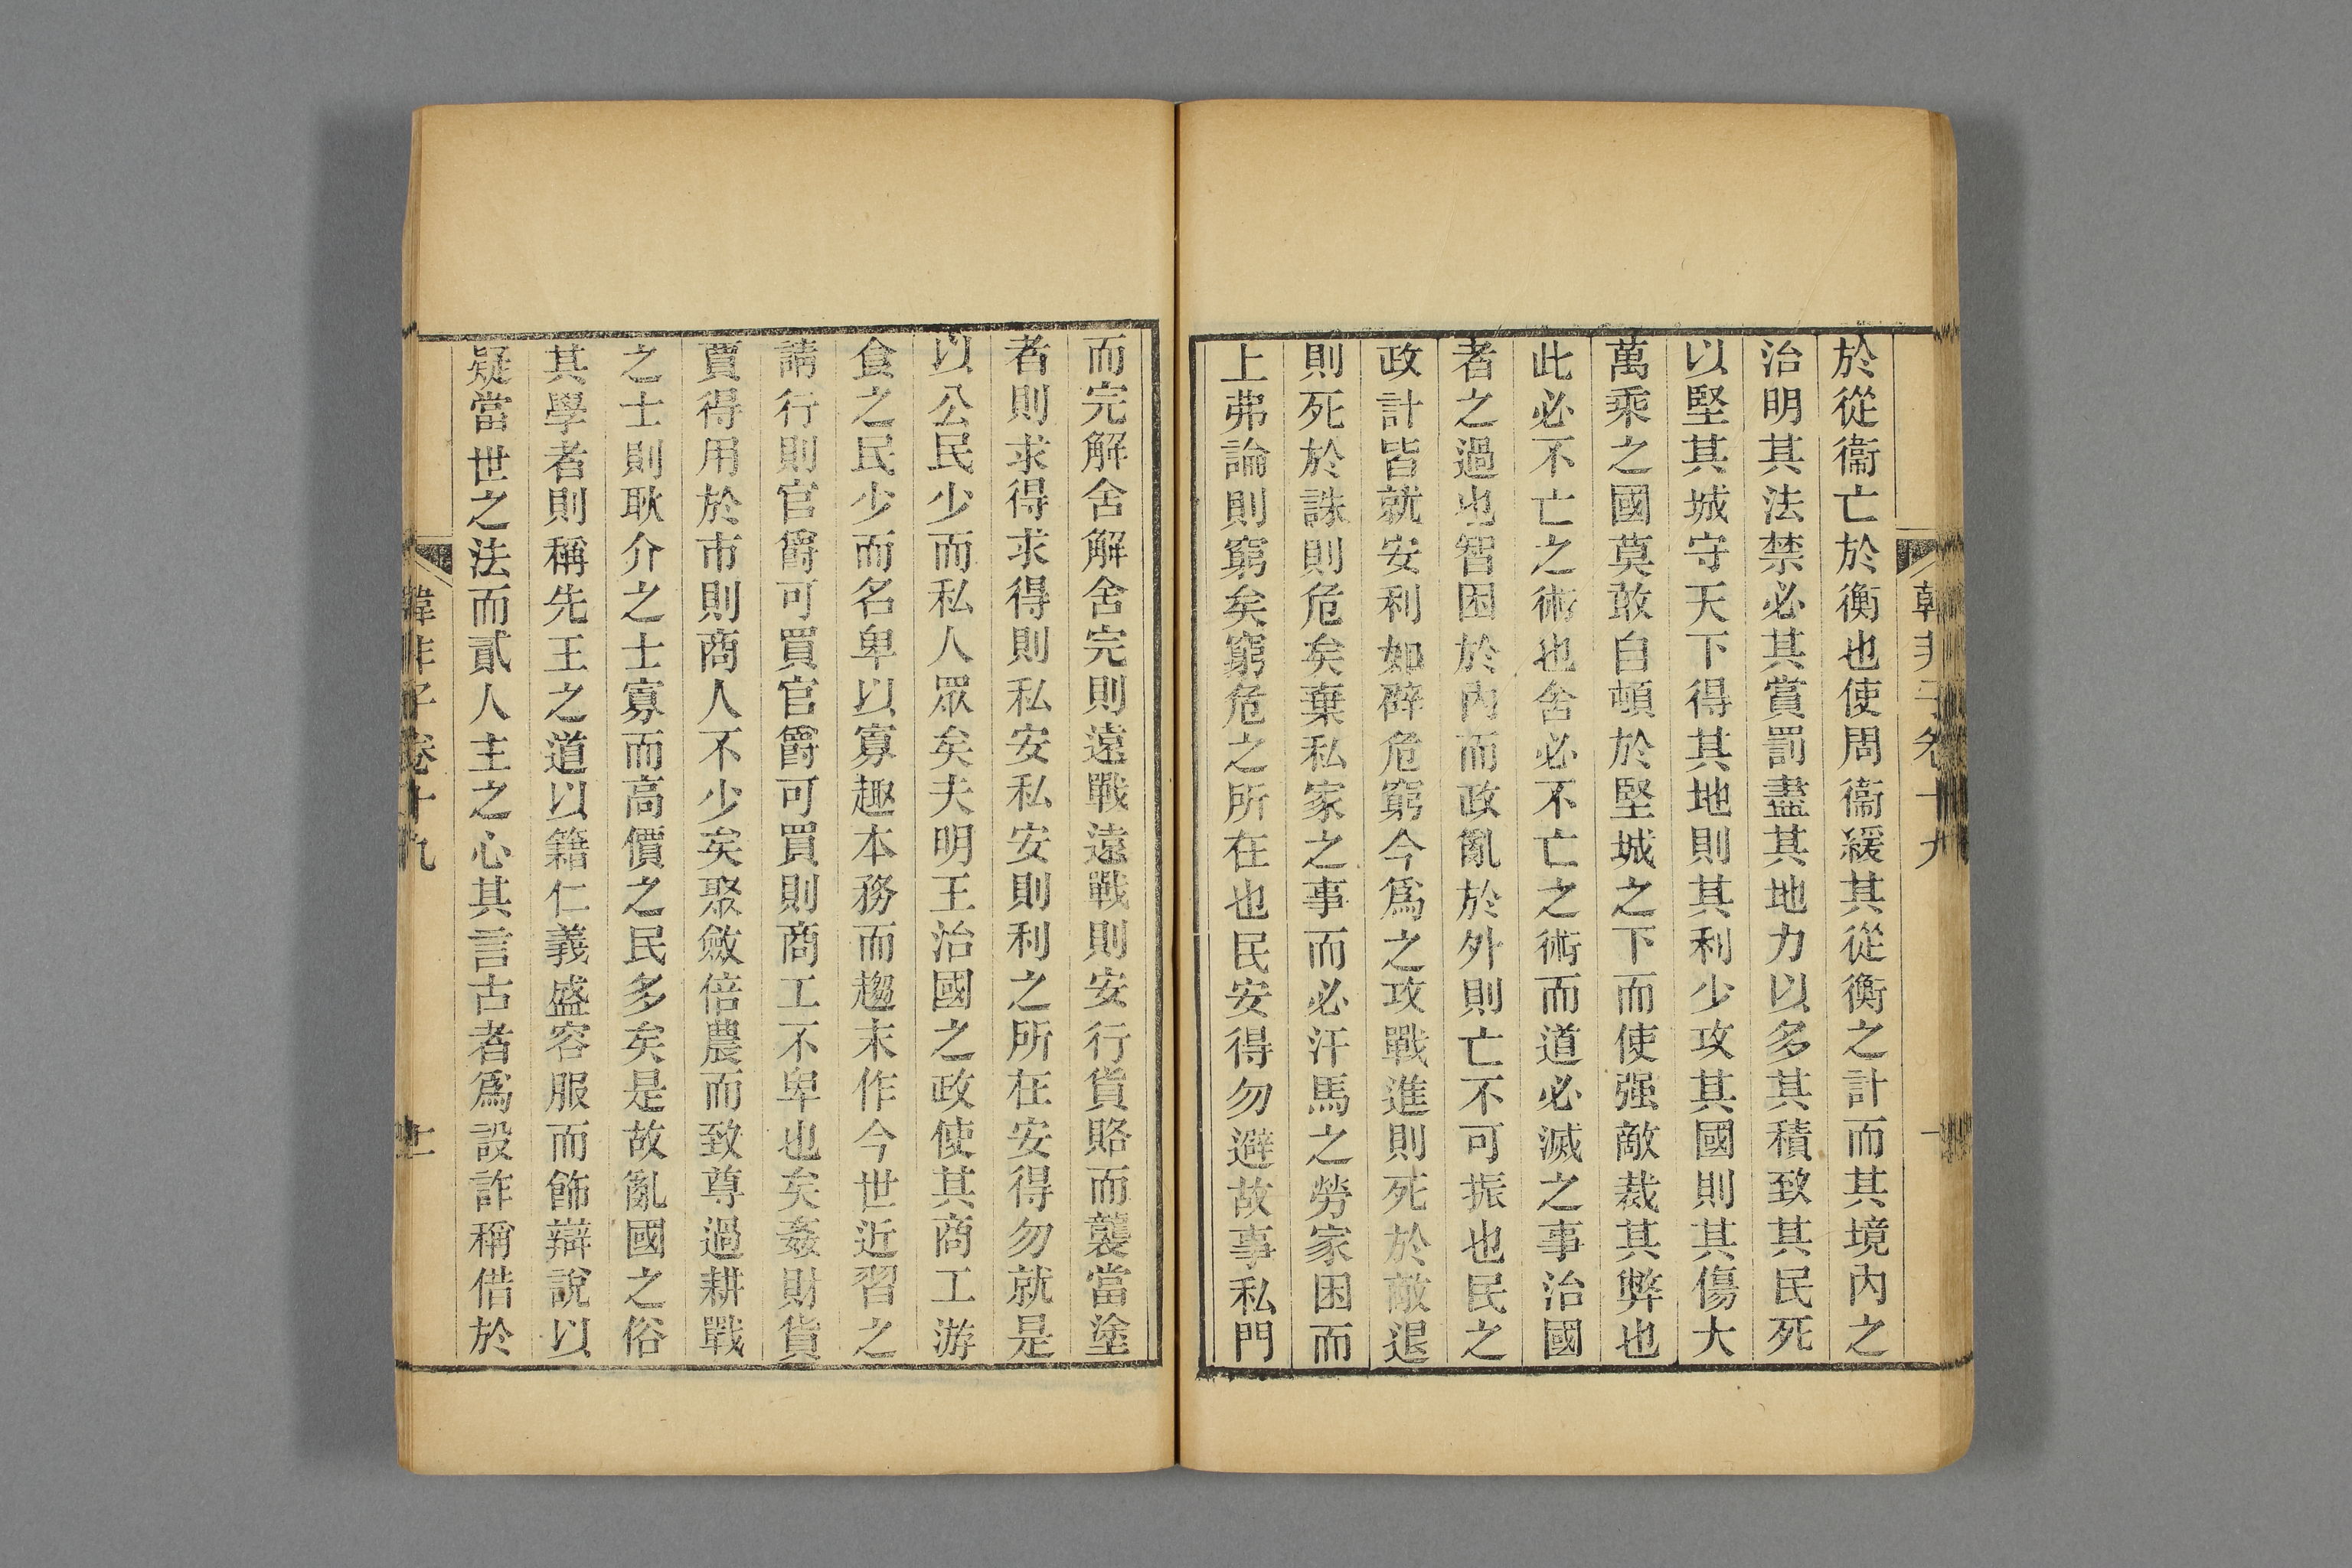 韓非子卷十九
於從衞亡於衡也使周衞緩其從衡之計而其境內之
治明其法禁必其賞罰盡其地力以多其積致其民死
以堅其城守天下得其地則其利少攻其國則其傷大
萬乘之國莫敢自頓於堅城之下而使强敵裁其弊也
此必不亡之術也舍必不亡之術而道必滅之事治國
者之過也智困於內而政亂於外則亡不可振也民之
政計皆就安利如辟危窮今爲之攻戰進則死於敵退
則死於誅則危矣棄私家之事而必汗馬之勞家困而
上弗論則窮矣窮危之所在也民安得勿避故事私門
而完解舍解舍完則遠戰遠戰則安行貨賂而襲當塗
者則求得求得則私安私安則利之所在安得勿就是
以公民少而私人眾矣夫明王治國之政使其商工游
食之民少而名卑以寡趣本務而趨末作今世近習之
請行則官爵可買官爵可買則商工不卑也矣姦財貨
賈得用於市則商人不少矣聚斂倍農而致尊過耕戰
之士則耿介之士寡而高價之民多矣是故亂國之俗
其學者則稱先王之道以籍仁義盛容服而飾辯說以
疑當世之法而貳人主之心其言古者爲設詐稱借於
韓非子卷十九